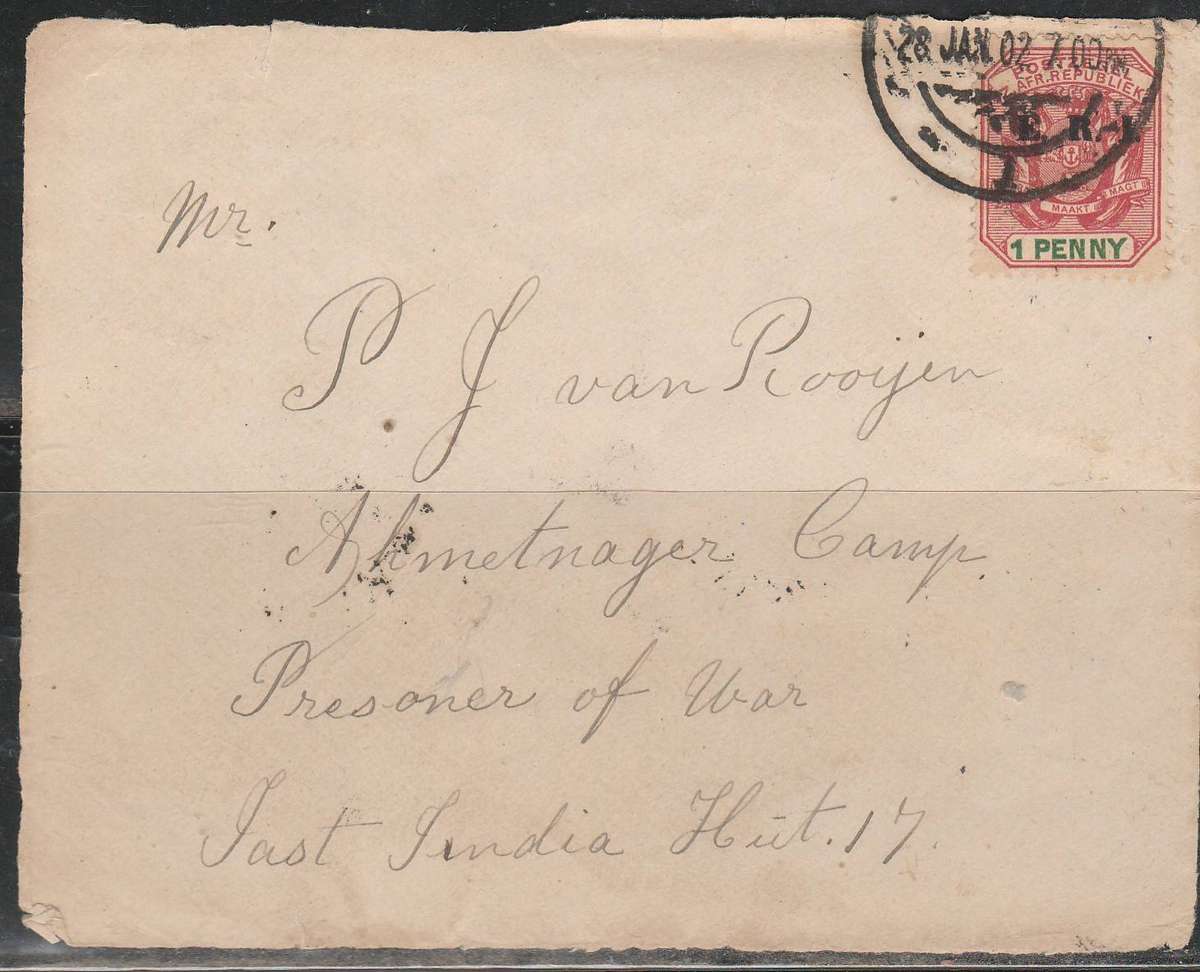 28 JAN. 02 7.00PM
POSTZEGEL
Z. AFR. REPUBLIEK
E. R. I.
MAAKT MAGT
1 PENNY
1
Mr.
P J van Rooijen
Ahmetnager Camp.
Presoner of War
East India Hut. 17.